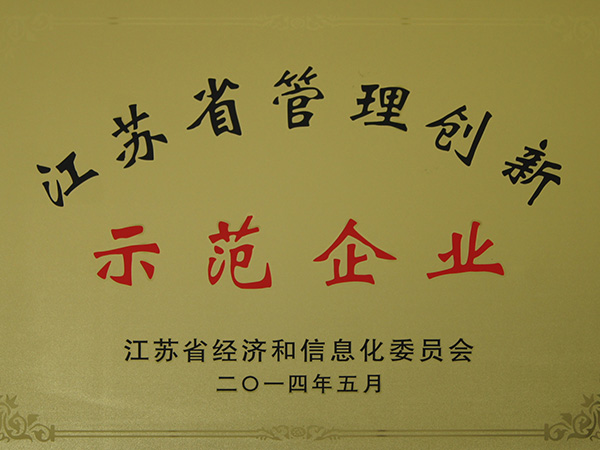 江苏省管理创新
示范企业
江苏省经济和信息化委员会
二〇一四年五月